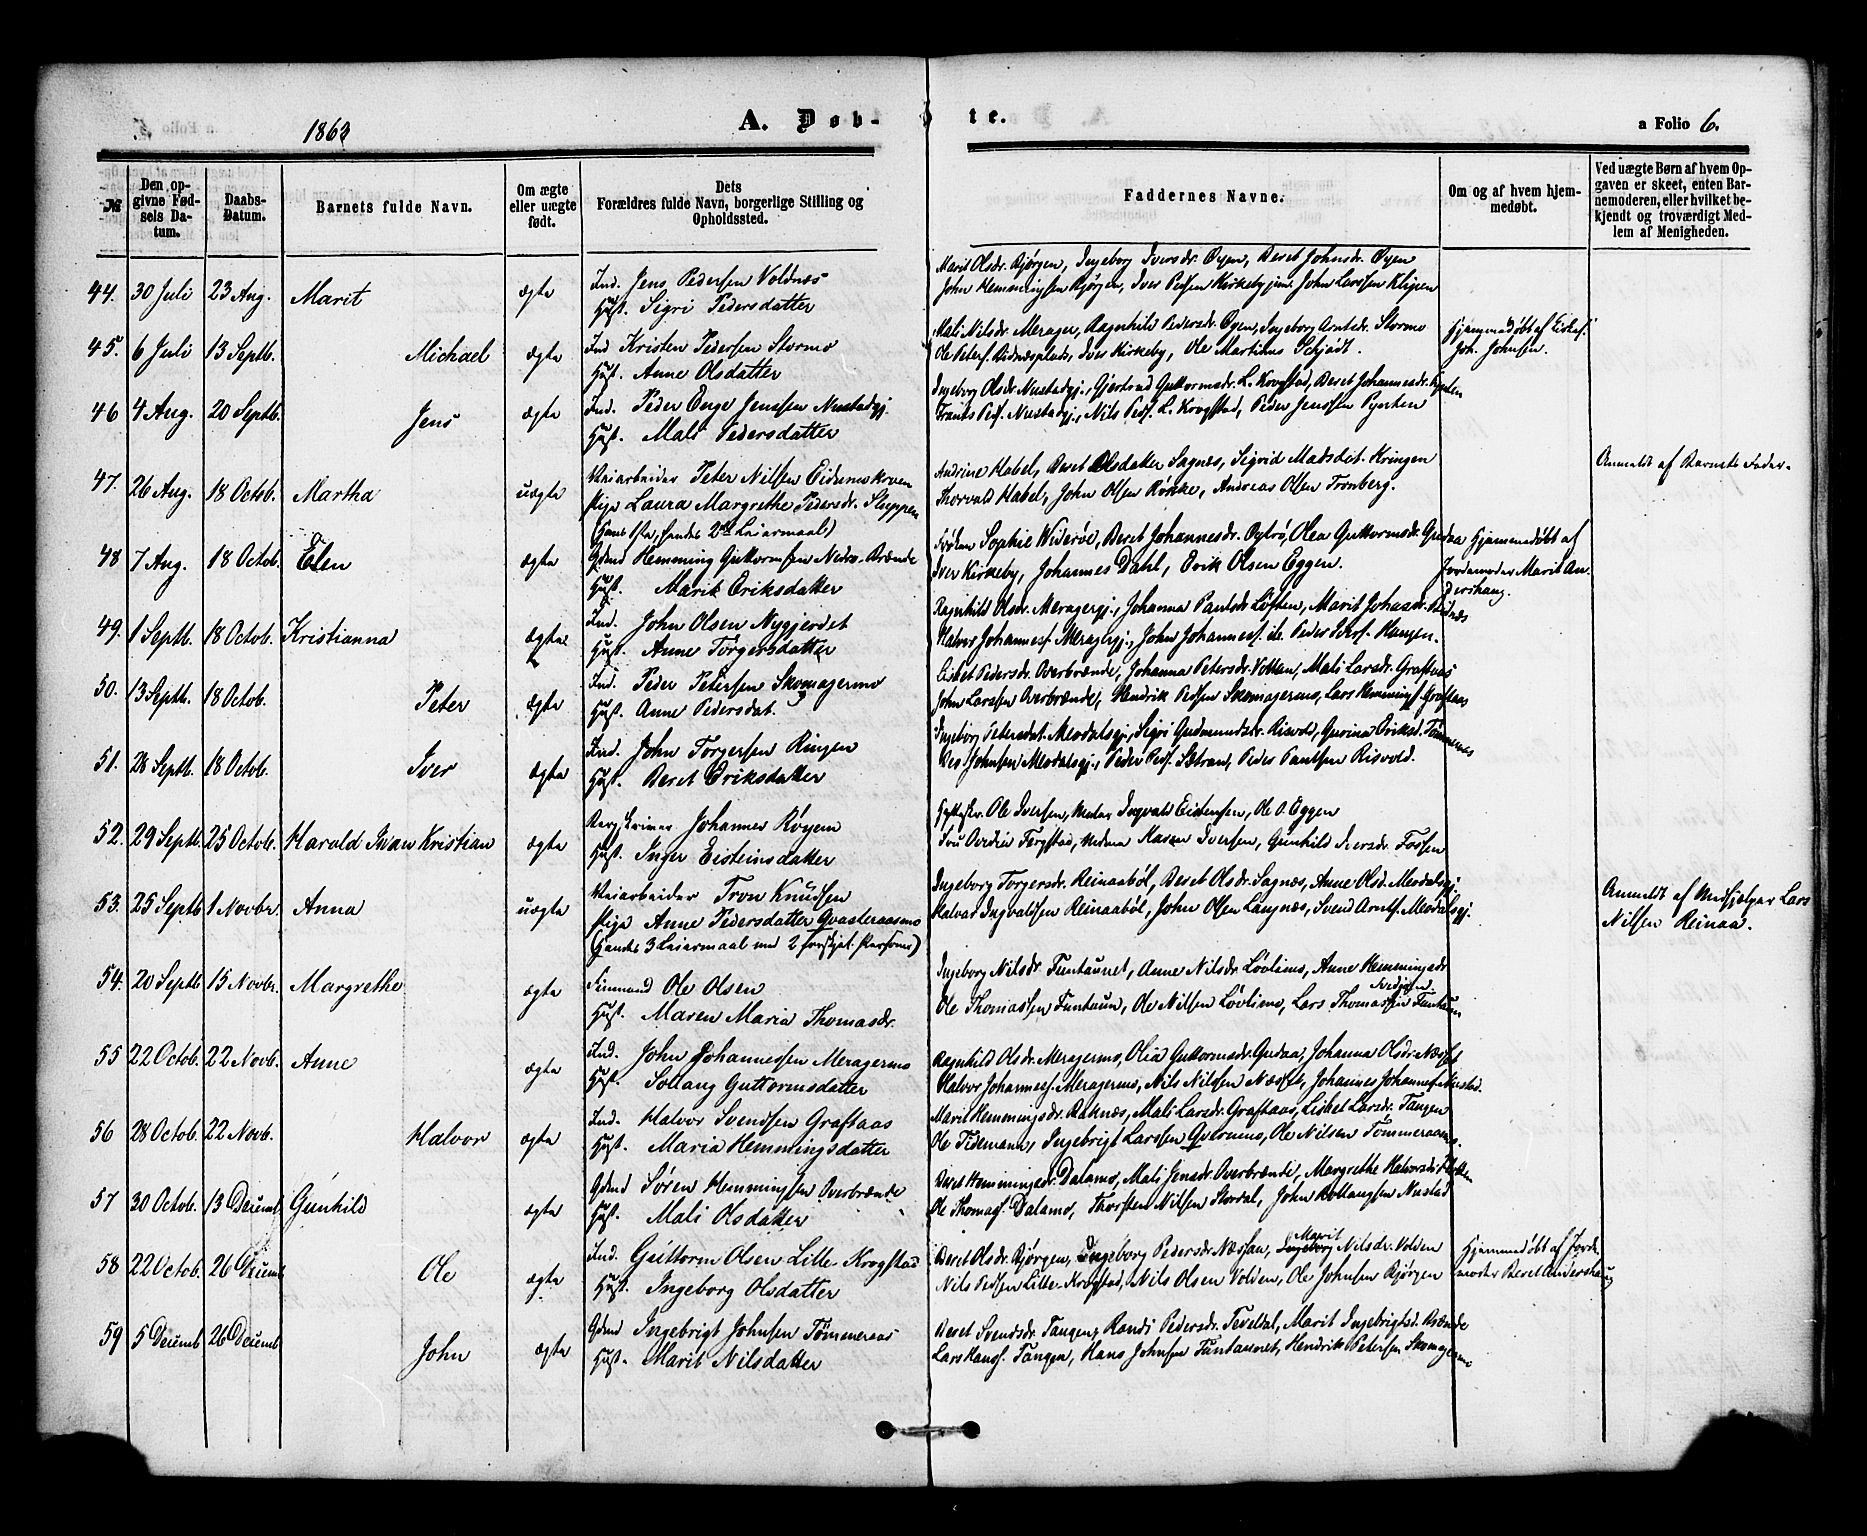 1863
A. Døb-te.
a Folio 6.
№
Den opgivne Fødsels Datum.
Daabs-Datum.
Barnets fulde Navn.
Om ægte eller uægte født.
Dets Forældres fulde Navn, borgerlige Stilling og Opholdssted.
Faddernes Navne.
Om og af hvem hjemmedøbt.
Ved uægte Børn af hvem Opgaven er skeet, enten Barnemoderen, eller hvilket bekjendt og troværdigt Medlem af Menigheden.
44. 30 Juli 23 Aug. Marit ægte Ind. Jens Pedersen Voldnæs
Hust. Sigri Pedersdatter
Marit Olsdr. Bjørgen, Ingeborg Iversdr. Øyen, Beret Johnsdr. Øyen
John Hemmingsen Bjørgen, Iver Pedsen Kirkeby John Larssen Klipen
45. 6 Juli 13 Septb. Michael ægte Ind Kristen Pedersen Stormo
Hust. Anne Olsdatter
Mali Nilsdr. Merager, Ragnhild Pedersdr. Øyen, Ingeborg Arntsdr. Stormo
Ole Peters. Iver Kirkeby, Ole Martinus Schjødt.
Hjemmedøbt af
Joh. Johnsen.
46 4 Aug. 20 Septb. Jens ægte Ind. Peder Enge Jenssen Nustadgj.
Hust. Mali Pedersdatter
Ingeborg Olsdr. Nustadgj., Gjertrud Guttormsdr. L. Krogstad, Beret Johannesdr.
Frants Peds. Nustadgj., Nils Peds. L. Krogstad, Peder Jenssen Pynten
47. 26 Aug. 18 Octob. Martha uægte Veiarbeider Peter Nilsen
Pige Laura Margrethe Pedersdr. Sluppen
(Hans 1ste, hendes 2det Leiermaal)
Andrine Habel, Beret Olsdatter Sagnes, Sigrid Madsdat. Kringen
Thorvald Habel, John Olsen Røkke, Andreas Olsen Tronberg.
Anmeldt af Barnets Fader.
48 7 Aug. 18 Octob. Elen ægte Gdmd Hemming Guttormsen Nedre-Brænde
Hust. Marit Eriksdatter
Frøken Sophie Widerøe, Beret Johannesdr. Olea Guttormsdr. Gudaa
Iver Kirkeby, Johannes Dahl, Erik Olsen Eggen.
Hjemmedøbt af
Jordemoder Marit Andershaug.
49. 1 Septb. 18 Octob. Kristianna ægte Ind. John Olsen Nygjerdet
Hust. Anne Torgersdatter
Ragnhild Olsdr. Meragergj., Johanna Paulsdr. Løften, Marit
Halvor Johanness. Meragergj., John Johanness. Peder
50. 13 Septb. 18 Octob. Peter ægte Ind. Peder Petersen Skomagermo
Hust. Anne Pedersdat.
Lisbet Pedersdr. Overbrænde, Johanna Petersdr. Votten, Mali Larsdr. Graftaas
John Larssen Overbrænde, Hendrik Pedsen Skomagermo, Lars Hemmings. Graftaas
51. 28 Septb. 18 Octob. Iver ægte Ind. John Torgersen Ringen
Hust. Beret Eriksdatter
Ingeborg Petersdat. Merdalsgj., Sigri Gudmundsdr. Risvold, Gurina Eriksd. Tømmeraas
Johnsen Merdalsgj., Peder Peds. Stran, Peder Paulsen Risvold.
52. 29 Septb. 25 Octob. Harald Iwan Kristian ægte Bergskriver Johannes Røyem
Hust. Inger Eisteinsdatter
Ole Iversen, Ingvald Eistensen, Ole O. Eggen
Madme Karen Iversen, Gunhild Iversdr. Fossen
53. 25 Septb 1 Novbr. Anna uægte Veiarbeider Tron Knudsen
Pige Anne Pedersdatter Qvasteraasmo
(Hendes 3 Leiermaal med 2 forskjel. Personer)
Ingeborg Torgersdr. Reinaabøl, Beret Olsdr. Sagnæs, Anne Olsd. Merdalsgj.
Halvor Ingvaldsen Reinaabøl, John Olsen Langnæs, Svend Arnts. Merdalsgj.
Anmeldt af Medhjelper Lars
Nilsen Reinaa.
54. 20 Septb 15 Novbr. Margrethe ægte Ole Olsen
Hust. Maren Maria Thomasdr.
Ingeborg Nilsdr. Funtaunet, Anne Nilsdr. Løvlimo, Anne Hemmingsdr
Ole Thomassen Funtaun, Ole Nilsen Løvlimo, Lars Thomassen Funtaun
55 22 Octob. 22 Novb. Anne ægte Ind. John Johannessen Meragermo
Hust. Solaug Guttormsdatter
Ragnhild Olsdr. Meragermo, Olia Guttormsdr. Gudaa, Johanna Olsdr. Næsset
Halvor Johanness. Meragermo, Nils Nilsen Næsset, Johannes Johannes. Nustad.
56 28 Octob. 22 Novb. Halvor ægte Ind. Halvor Svendsen Graftaas
Hust. Maria Hemmingsdatter
Marit Hemmingsdr. Mali Larsdr. Graftaas, Lisbet Larsdr. Tangen
Ole Tidemann, Ingebrigt Larssen Qvernmo, Ole Nilsen Tømmeraasmo.
57 30 Octob. 13 Decemb. Gunhild ægte Gdmd Søren Hemmingsen Overbrænde
Hust. Mali Olsdatter
Beret Hemmingsdr. Dalamo, Mali Jensdr. Overbrænde, Margrethe Halvorsdr.
Ole Thomass. Dalamo, Thorsten Nilsen Stordal, John Nustad
58 22 Octob. 26 Decemb Ole ægte Ind. Guttorm Olsen Lille-Krogstad
Hust. Ingeborg Olsdatter
Beret Olsdr. Bjørgen, Ingeborg Pedersdr. Næssan, Ingeborg Marit Nilsdr. Volden
Nils Pedsen Lille-Krogstad, Nils Olsen Volden, Ole Johnsen Bjørgen
Hjemmedøbt af Jordemoder Beret Andershaug
59 5 Decemb 26 Decemb John ægte Gdmd Ingebrigt Johnsen Tømmeraas
Hust. Marit Nilsdatter
Beret Svendsdr. Tangen, Randi Pedersdr. Teveldal, Marit Ingebrigtsd. Brænde
Lars Hans. Tangen, Hans Johnsen Funtaunet, Hendrik Petersen Skomagermo